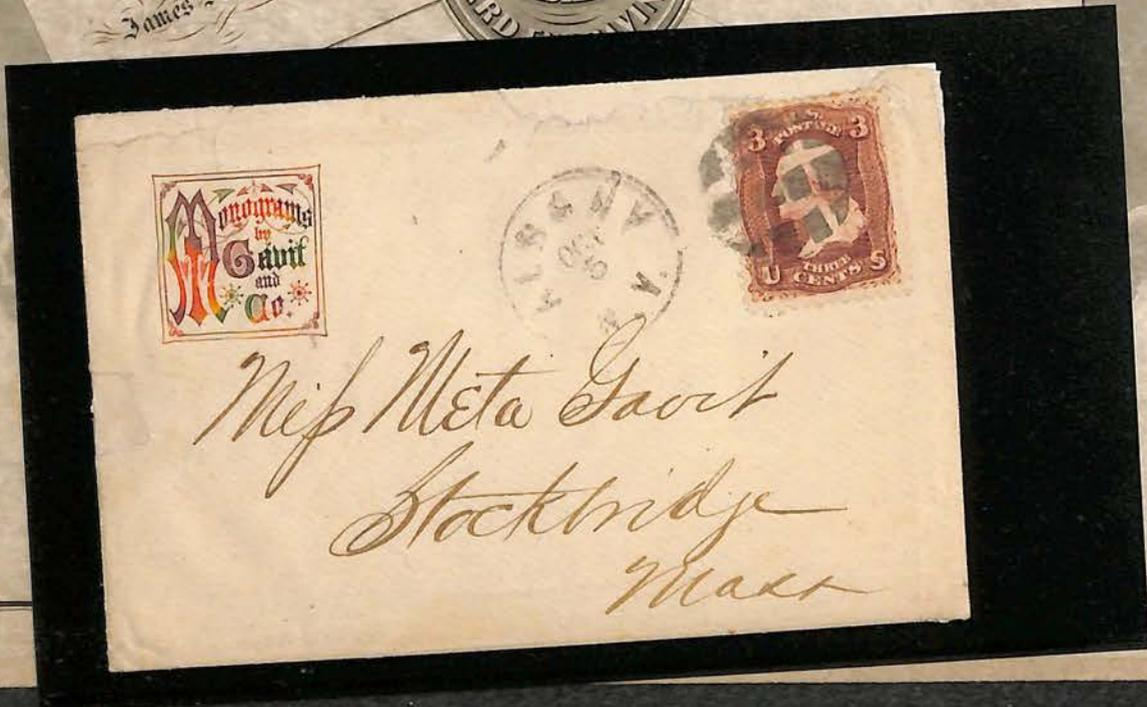 James
Monograms
by
Gavit
and
Co.
ALBANY
OCT
N.Y.
3 U.S. 3
POSTAGE
U THREE S
CENTS
Miſs Meta Gavit
Stockbridge
Mass